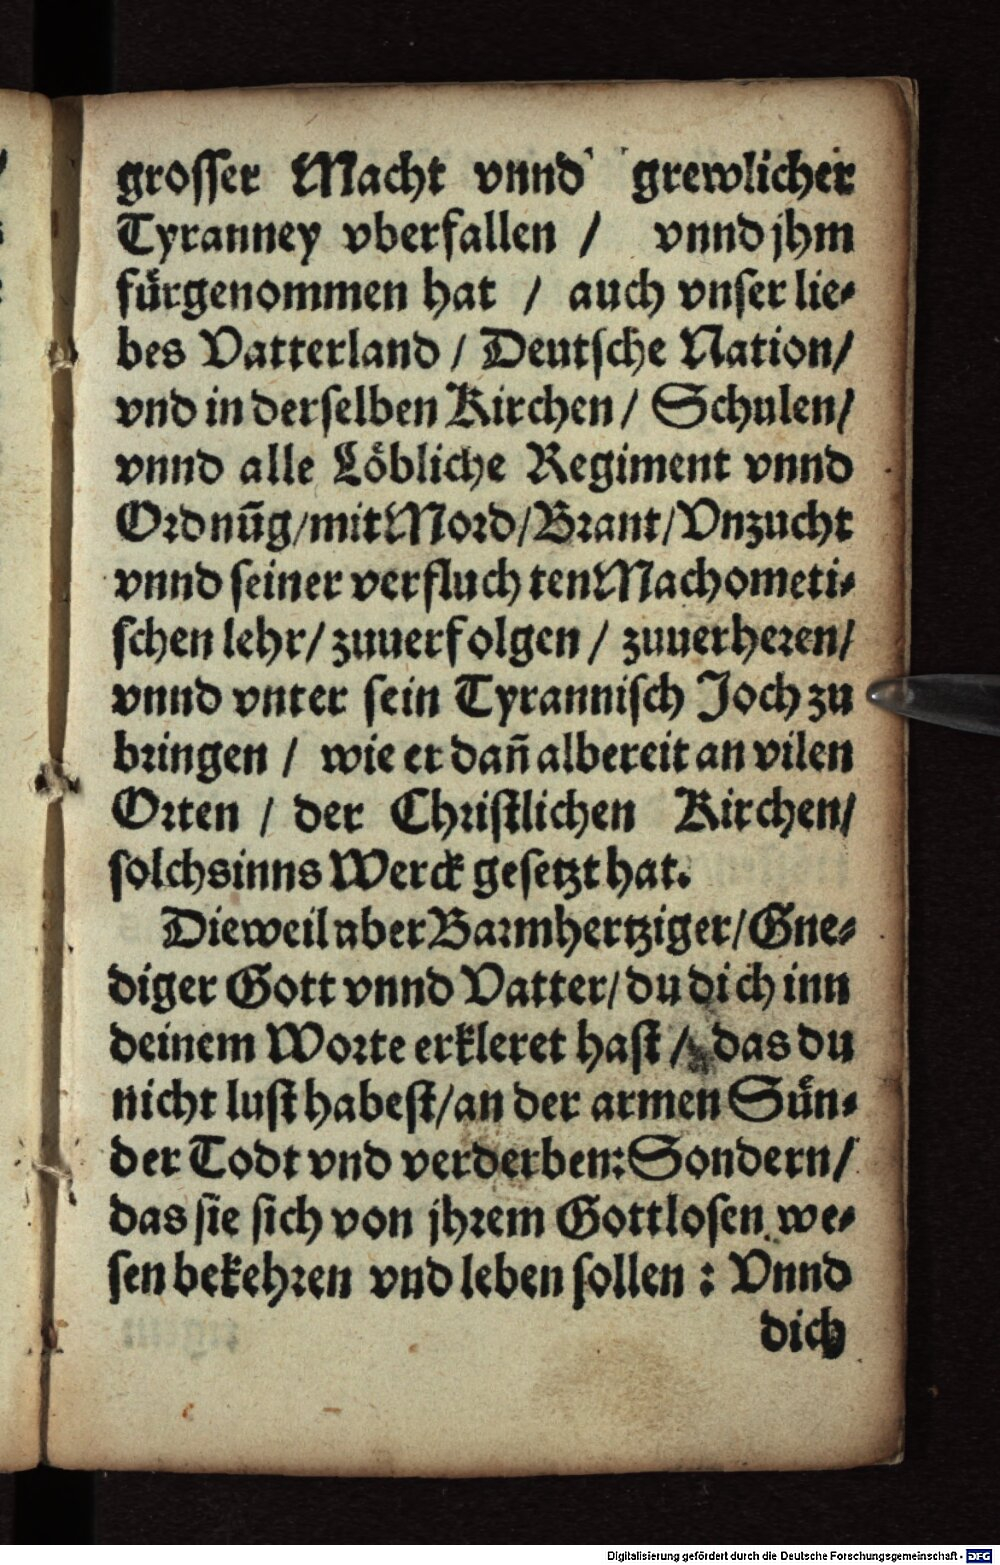 grosser Macht vnnd grewlicher
Tyranney vberfallen / vnnd jhm
fürgenommen hat / auch vnser lie-
bes Vatterland / Deutsche Nation/
vnd in derselben Kirchen / Schulen/
vnnd alle Löbliche Regiment vnnd
Ordnūg/mit Mord/Brant/Vnzucht
vnnd seiner verfluchten Machometi-
schen lehr/ zuuerfolgen / zuuerheren/
vnnd vnter sein Tyrannisch Joch zu
bringen / wie er dañ albereit an vilen
Orten / der Christlichen Kirchen/
solchs inns Werck gesetzt hat.
Dieweil aber Barmhertziger/Gne-
diger Gott vnnd Vatter/du dich inn
deinem Worte erkleret hast / das du
nicht lust habest/an der armen Sün-
der Todt vnd verderben: Sondern/
das sie sich von jhrem Gottlosen we-
sen bekehren vnd leben sollen : Vnnd
dich
Digitalisierung gefördert durch die Deutsche Forschungsgemeinschaft - DFG